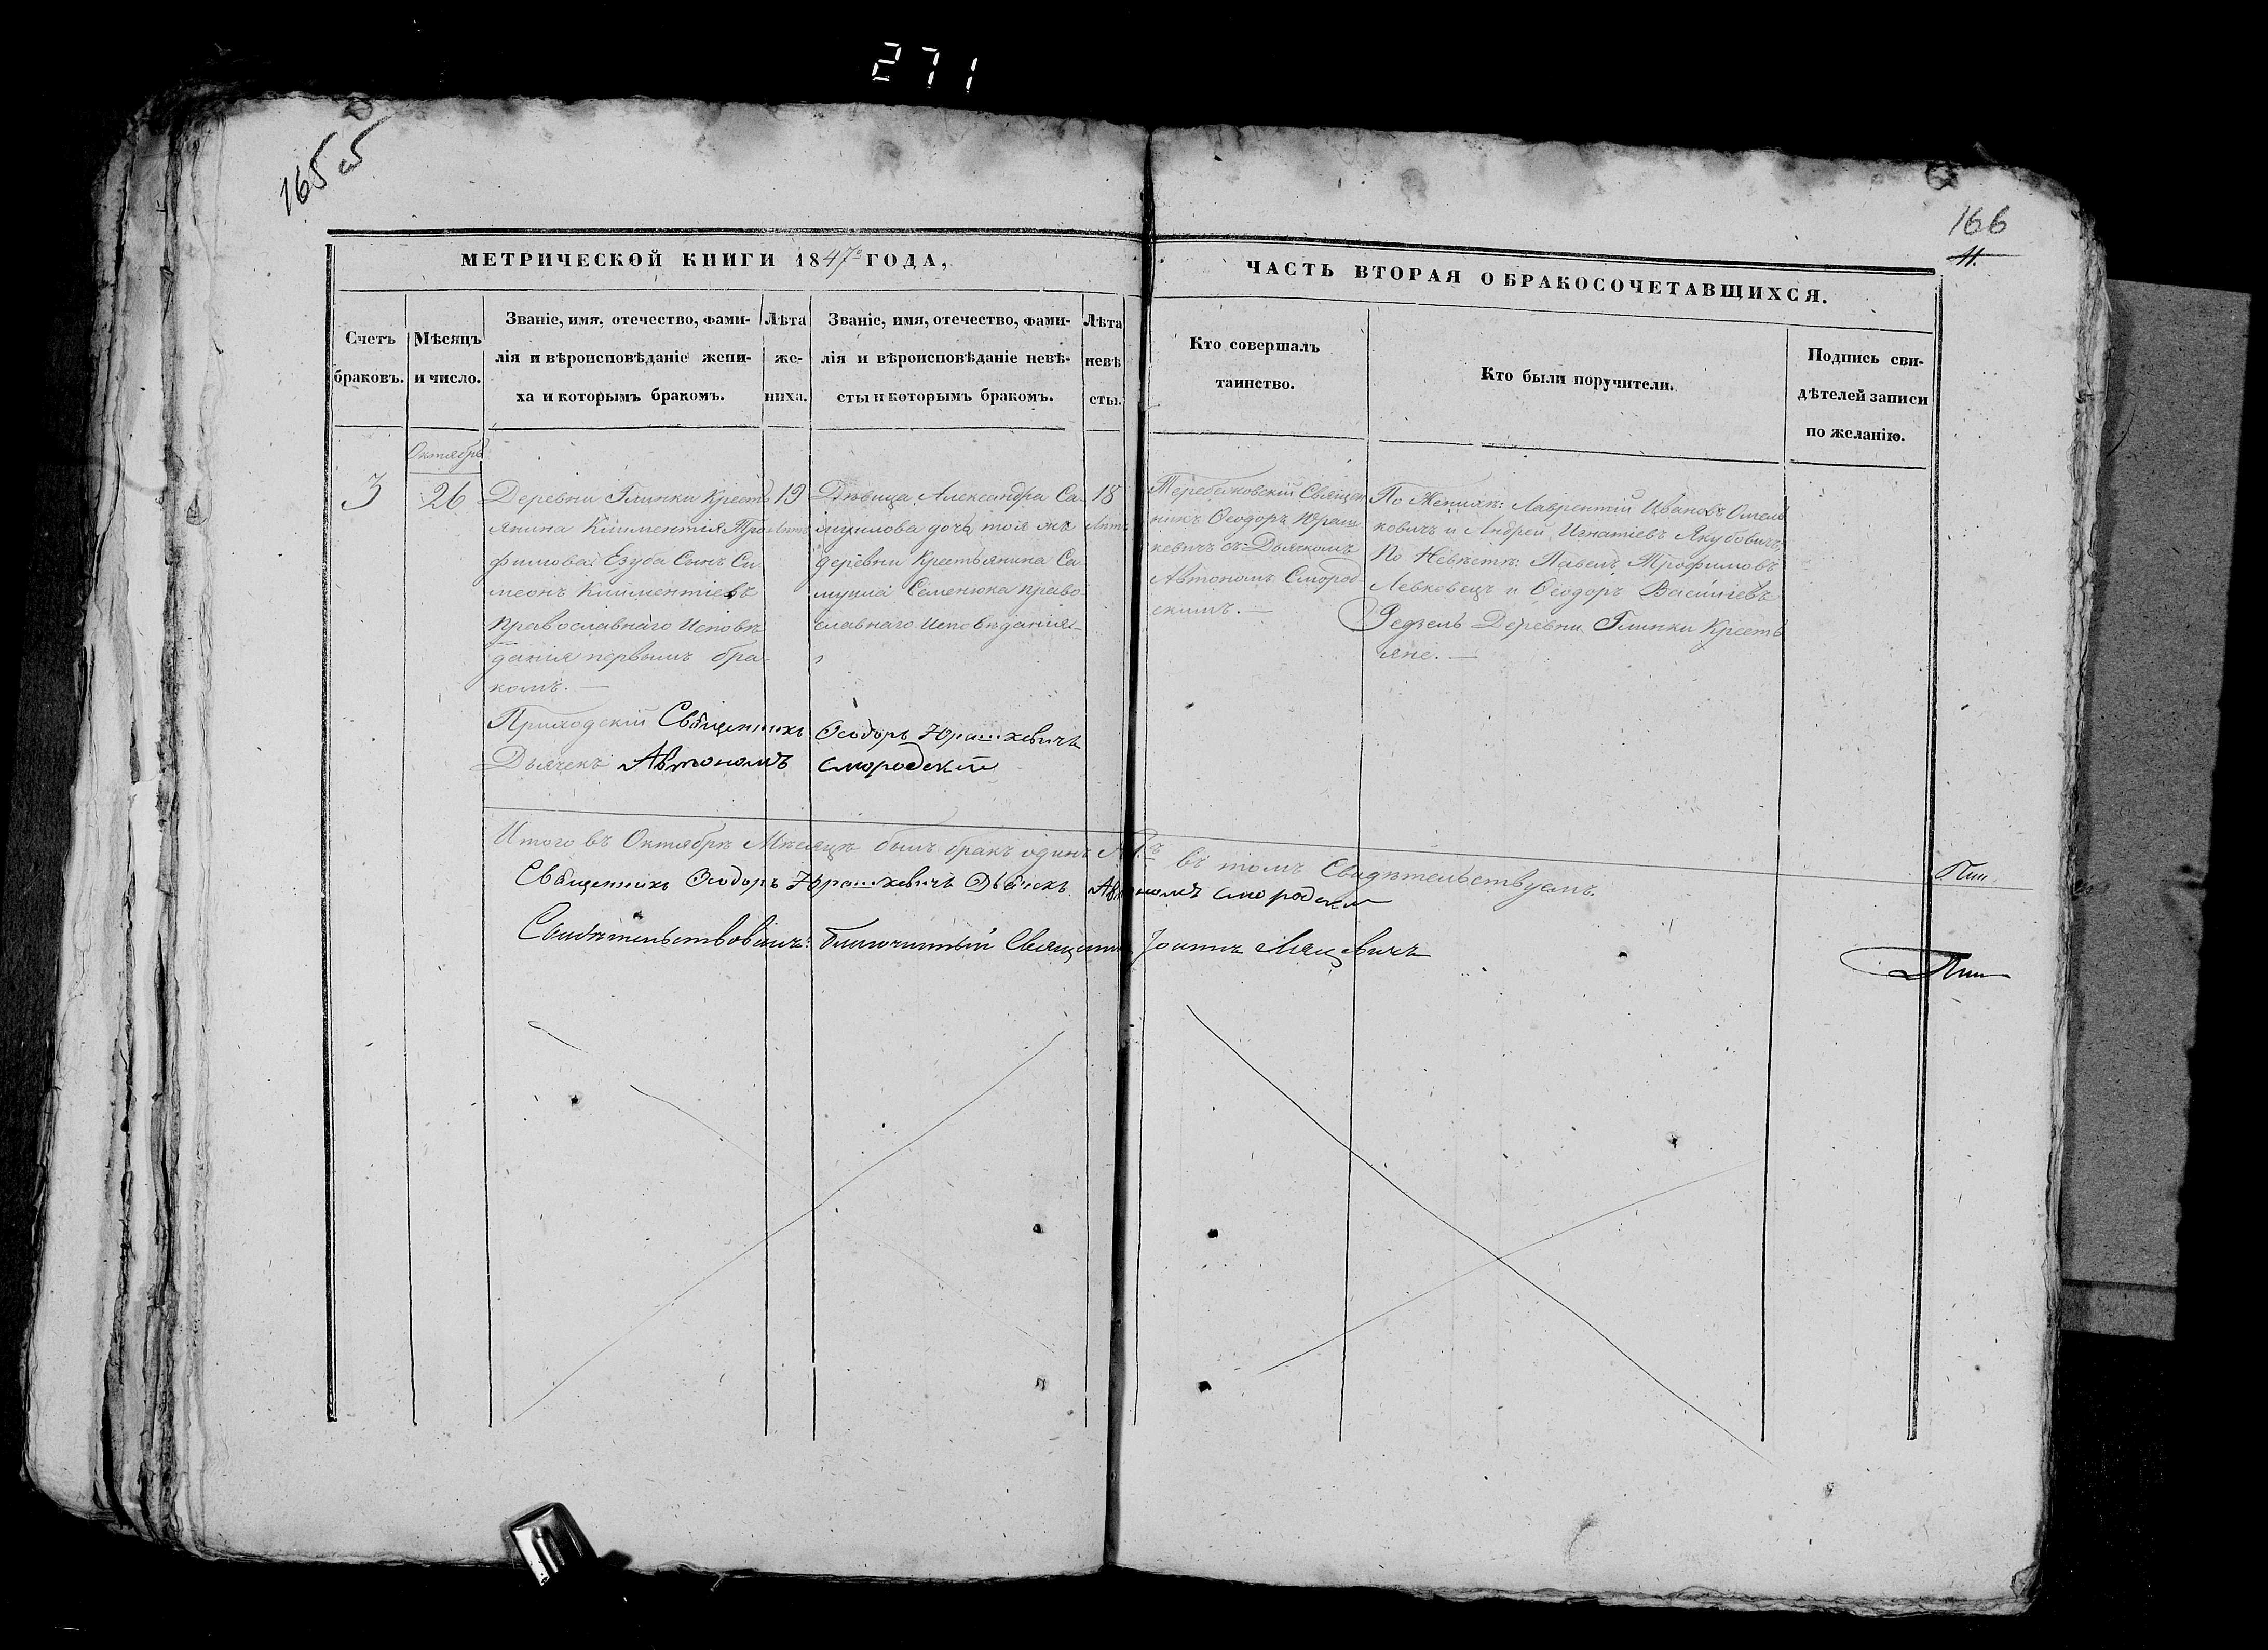 271
165 об
166
11.
МЕТРИЧЕСКОЙ КНИГИ 1847го ГОДА,
ЧАСТЬ ВТОРАЯ О БРАКОСОЧЕТАВШИХСЯ.
Счетъ
браковъ.
Мѣсяцъ
и число.
Званіе, имя, отечество, фами-
лія и вѣроисповѣданіе жени-
ха и которымъ бракомъ.
Лѣта
же-
ниха.
Званіе, имя, отечество, фами-
лія и вѣроисповѣданіе невѣ-
сты и которымъ бракомъ.
Лѣта
невѣ
сты.
Кто совершалъ
таинство.
Кто были поручители.
Подпись сви-
дѣтелей записи
по желанію.
Октябрь
3
26
Деревни Глинки Кресть
янина Климентія Тро
фимова Езуба Сынъ Си
меонъ Климентіевъ
Православнаго Исповѣ
данія первымъ бра-
комъ. —
19
Лѣтъ
Дѣвица Александра Са-
муилова дочь тоя же
деревни Крестьянина Са
муила Семенюка право-
славнаго Исповѣданія
18
Лѣтъ
Теребежовскій Священ
никъ Ѳеодоръ Юраш
кевичъ съ Дьячкомъ
Автономъ Смород-
скимъ. —
По Женихѣ: Лаврентій Ивановъ Омель
ковичъ и Андрей Игнатіевъ Якубовичъ,
По Невѣстѣ: Павелъ Трофимовъ
Левковецъ и Ѳеодоръ Василіевъ
Редзель Деревни Глинки Кресть
яне. —
Приходскій Священникъ Ѳеодоръ Юрашкевичъ
Дьячекъ Автономъ Смородскій
Итого въ Октябрѣ Мѣсяцѣ былъ бракъ одинъ въ томъ Свидѣтельствуемъ.
Священникъ Ѳеодоръ Юрашкевичъ Дьячекъ Автономъ Смородскій
Свидѣтельствовалъ: благочинный Священникъ Іоаннъ Мацевичъ